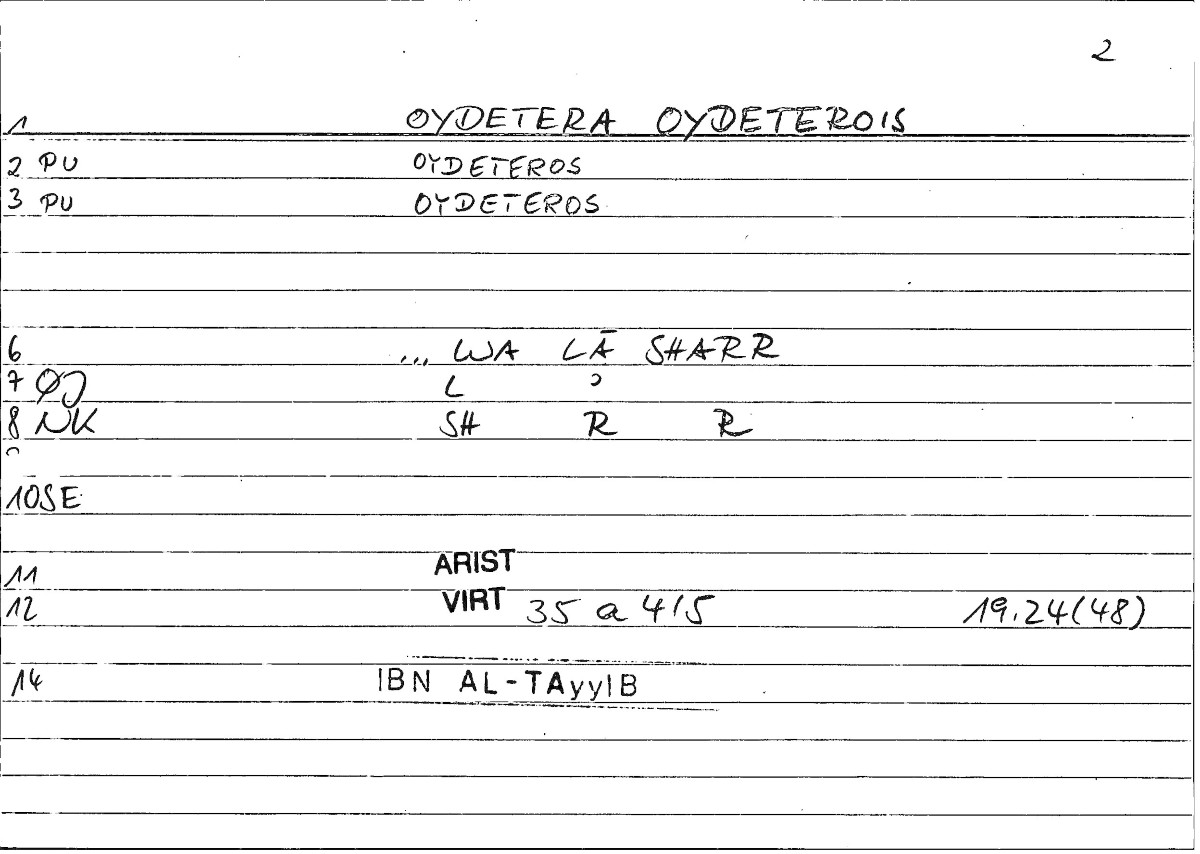 2
1 OYDETERA OYDETEROIS
2 PU OYDETEROS
3 PU OYDETEROS
6 ... WA LĀ SHARR
7 ØJ L ʾ
8 NK SH R R
10 SE
11 ARIST
12 VIRT 35 a 4/5 19.24(48)
14 IBN AL-TAyyIB